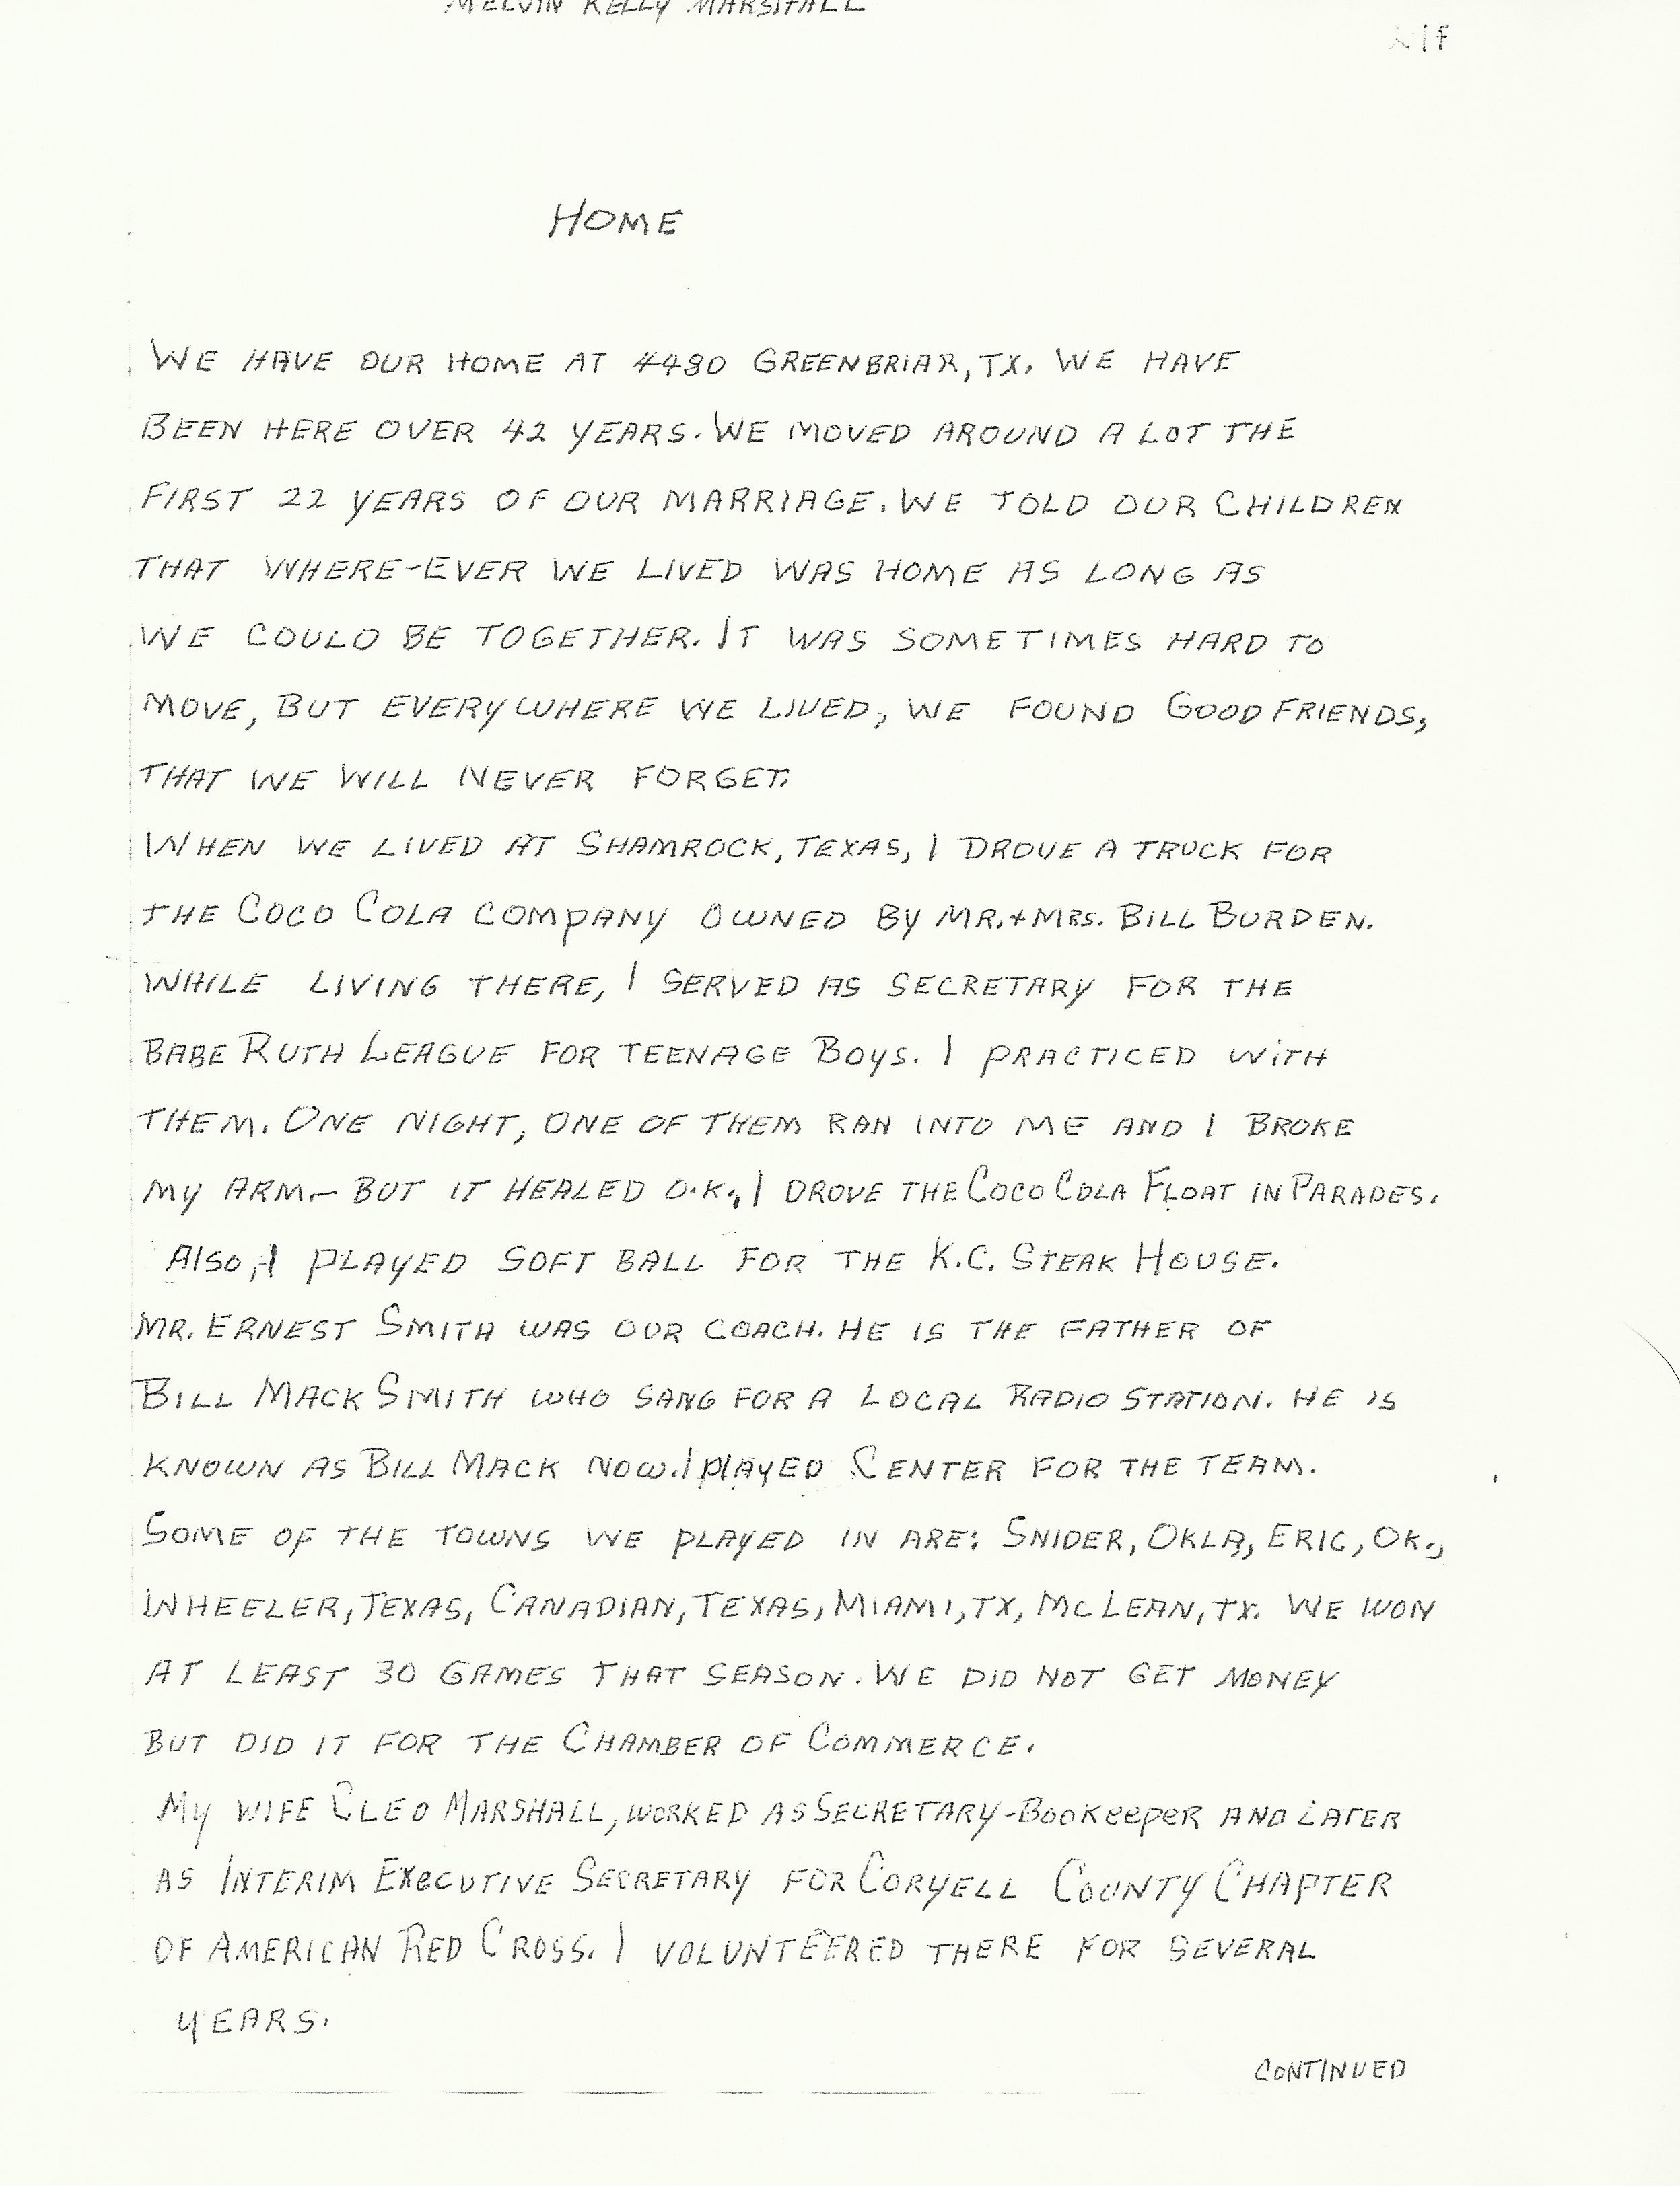 MELVIN KELLY MARSHALL
HOME
WE HAVE OUR HOME AT 4480 GREENBRIAR, TX. WE HAVE
BEEN HERE OVER 42 YEARS. WE MOVED AROUND A LOT THE
FIRST 22 YEARS OF OUR MARRIAGE. WE TOLD OUR CHILDREN
THAT WHERE-EVER WE LIVED WAS HOME AS LONG AS
WE COULD BE TOGETHER. IT WAS SOMETIMES HARD TO
MOVE, BUT EVERYWHERE WE LIVED, WE FOUND GOOD FRIENDS,
THAT WE WILL NEVER FORGET.
WHEN WE LIVED AT SHAMROCK, TEXAS, I DROVE A TRUCK FOR
THE COCO COLA COMPANY OWNED BY MR. + MRS. BILL BURDEN.
WHILE LIVING THERE, I SERVED AS SECRETARY FOR THE
BABE RUTH LEAGUE FOR TEENAGE BOYS. I PRACTICED WITH
THEM. ONE NIGHT, ONE OF THEM RAN INTO ME AND I BROKE
MY ARM - BUT IT HEALED O.K., I DROVE THE COCO COLA FLOAT IN PARADES.
ALSO, I PLAYED SOFT BALL FOR THE K.C. STEAK HOUSE.
MR. ERNEST SMITH WAS OUR COACH. HE IS THE FATHER OF
BILL MACK SMITH WHO SANG FOR A LOCAL RADIO STATION. HE IS
KNOWN AS BILL MACK NOW. I PLAYED CENTER FOR THE TEAM.
SOME OF THE TOWNS WE PLAYED IN ARE: SNIDER, OKLA, ERIC, OK.,
WHEELER, TEXAS, CANADIAN, TEXAS, MIAMI, TX, MCLEAN, TX. WE WON
AT LEAST 30 GAMES THAT SEASON. WE DID NOT GET MONEY
BUT DID IT FOR THE CHAMBER OF COMMERCE.
MY WIFE CLEO MARSHALL, WORKED AS SECRETARY-BOOKEEPER AND LATER
AS INTERIM EXECUTIVE SECRETARY FOR CORYELL COUNTY CHAPTER
OF AMERICAN RED CROSS. I VOLUNTEERED THERE FOR SEVERAL
YEARS.
CONTINUED